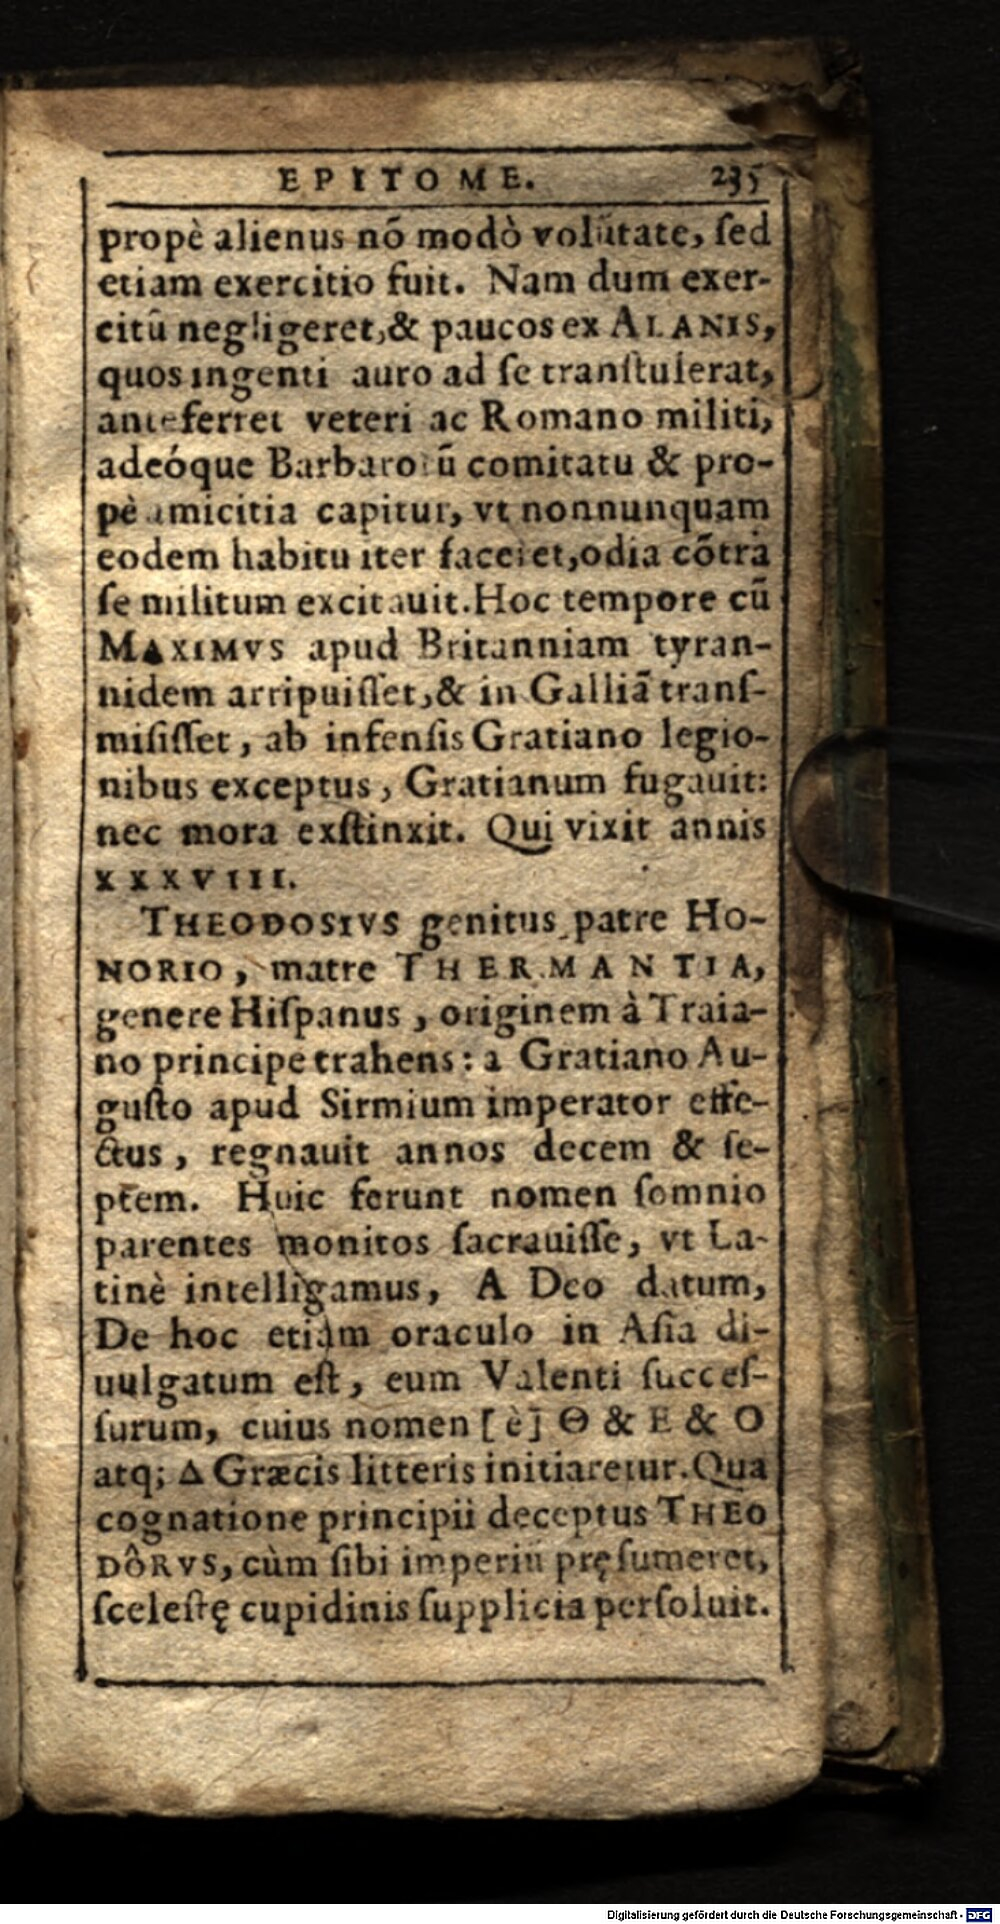 EPITOME. 235
propè alienus nõ modò volũtate, ſed
etiam exercitio fuit. Nam dum exer-
citũ negligeret, & paucos ex ALANIS,
quos ingenti auro ad ſe tranſtulerat,
anteferret veteri ac Romano militi,
adeóque Barbarorũ comitatu & pro-
pè amicitia capitur, vt nonnunquam
eodem habitu iter faceret, odia cõtra
ſe militum excitauit. Hoc tempore cũ
MAXIMVS apud Britanniam tyran-
nidem arripuiſſet, & in Galliã tranſ-
miſiſſet, ab infenſis Gratiano legio-
nibus exceptus, Gratianum fugauit:
nec mora exſtinxit. Qui vixit annis
XXXVIII.
THEODOSIVS genitus patre HO-
NORIO, matre THERMANTIA,
genere Hiſpanus, originem à Traia-
no principe trahens: a Gratiano Au-
guſto apud Sirmium imperator effe-
ctus, regnauit annos decem & ſe-
ptem. Huic ferunt nomen ſomnio
parentes monitos ſacrauiſſe, vt La-
tinè intelligamus, A Deo datum,
De hoc etiam oraculo in Aſia di-
uulgatum eſt, eum Valenti ſucceſ-
ſurum, cuius nomen [è] Θ & E & O
atq; Δ Græcis litteris initiaretur. Qua
cognatione principii deceptus THEO
DÔRVS, cùm ſibi imperiũ pręſumeret,
ſceleſtę cupidinis ſupplicia perſoluit.
Digitalisierung gefördert durch die Deutsche Forschungsgemeinschaft - DFG